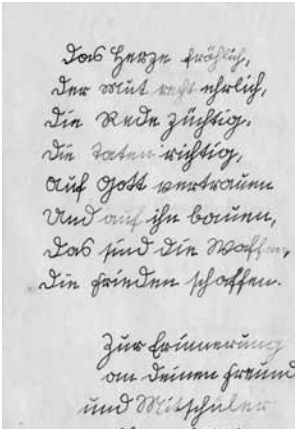 Das Herze fröhlich,
der Mut recht ehrlich,
die Rede züchtig,
die Taten richtig,
auf Gott vertrauen
Und auf ihn bauen,
das sind die Waffen,
die Frieden schaffen.
Zur Erinnerung
an deinen Freund
und Mitschüler